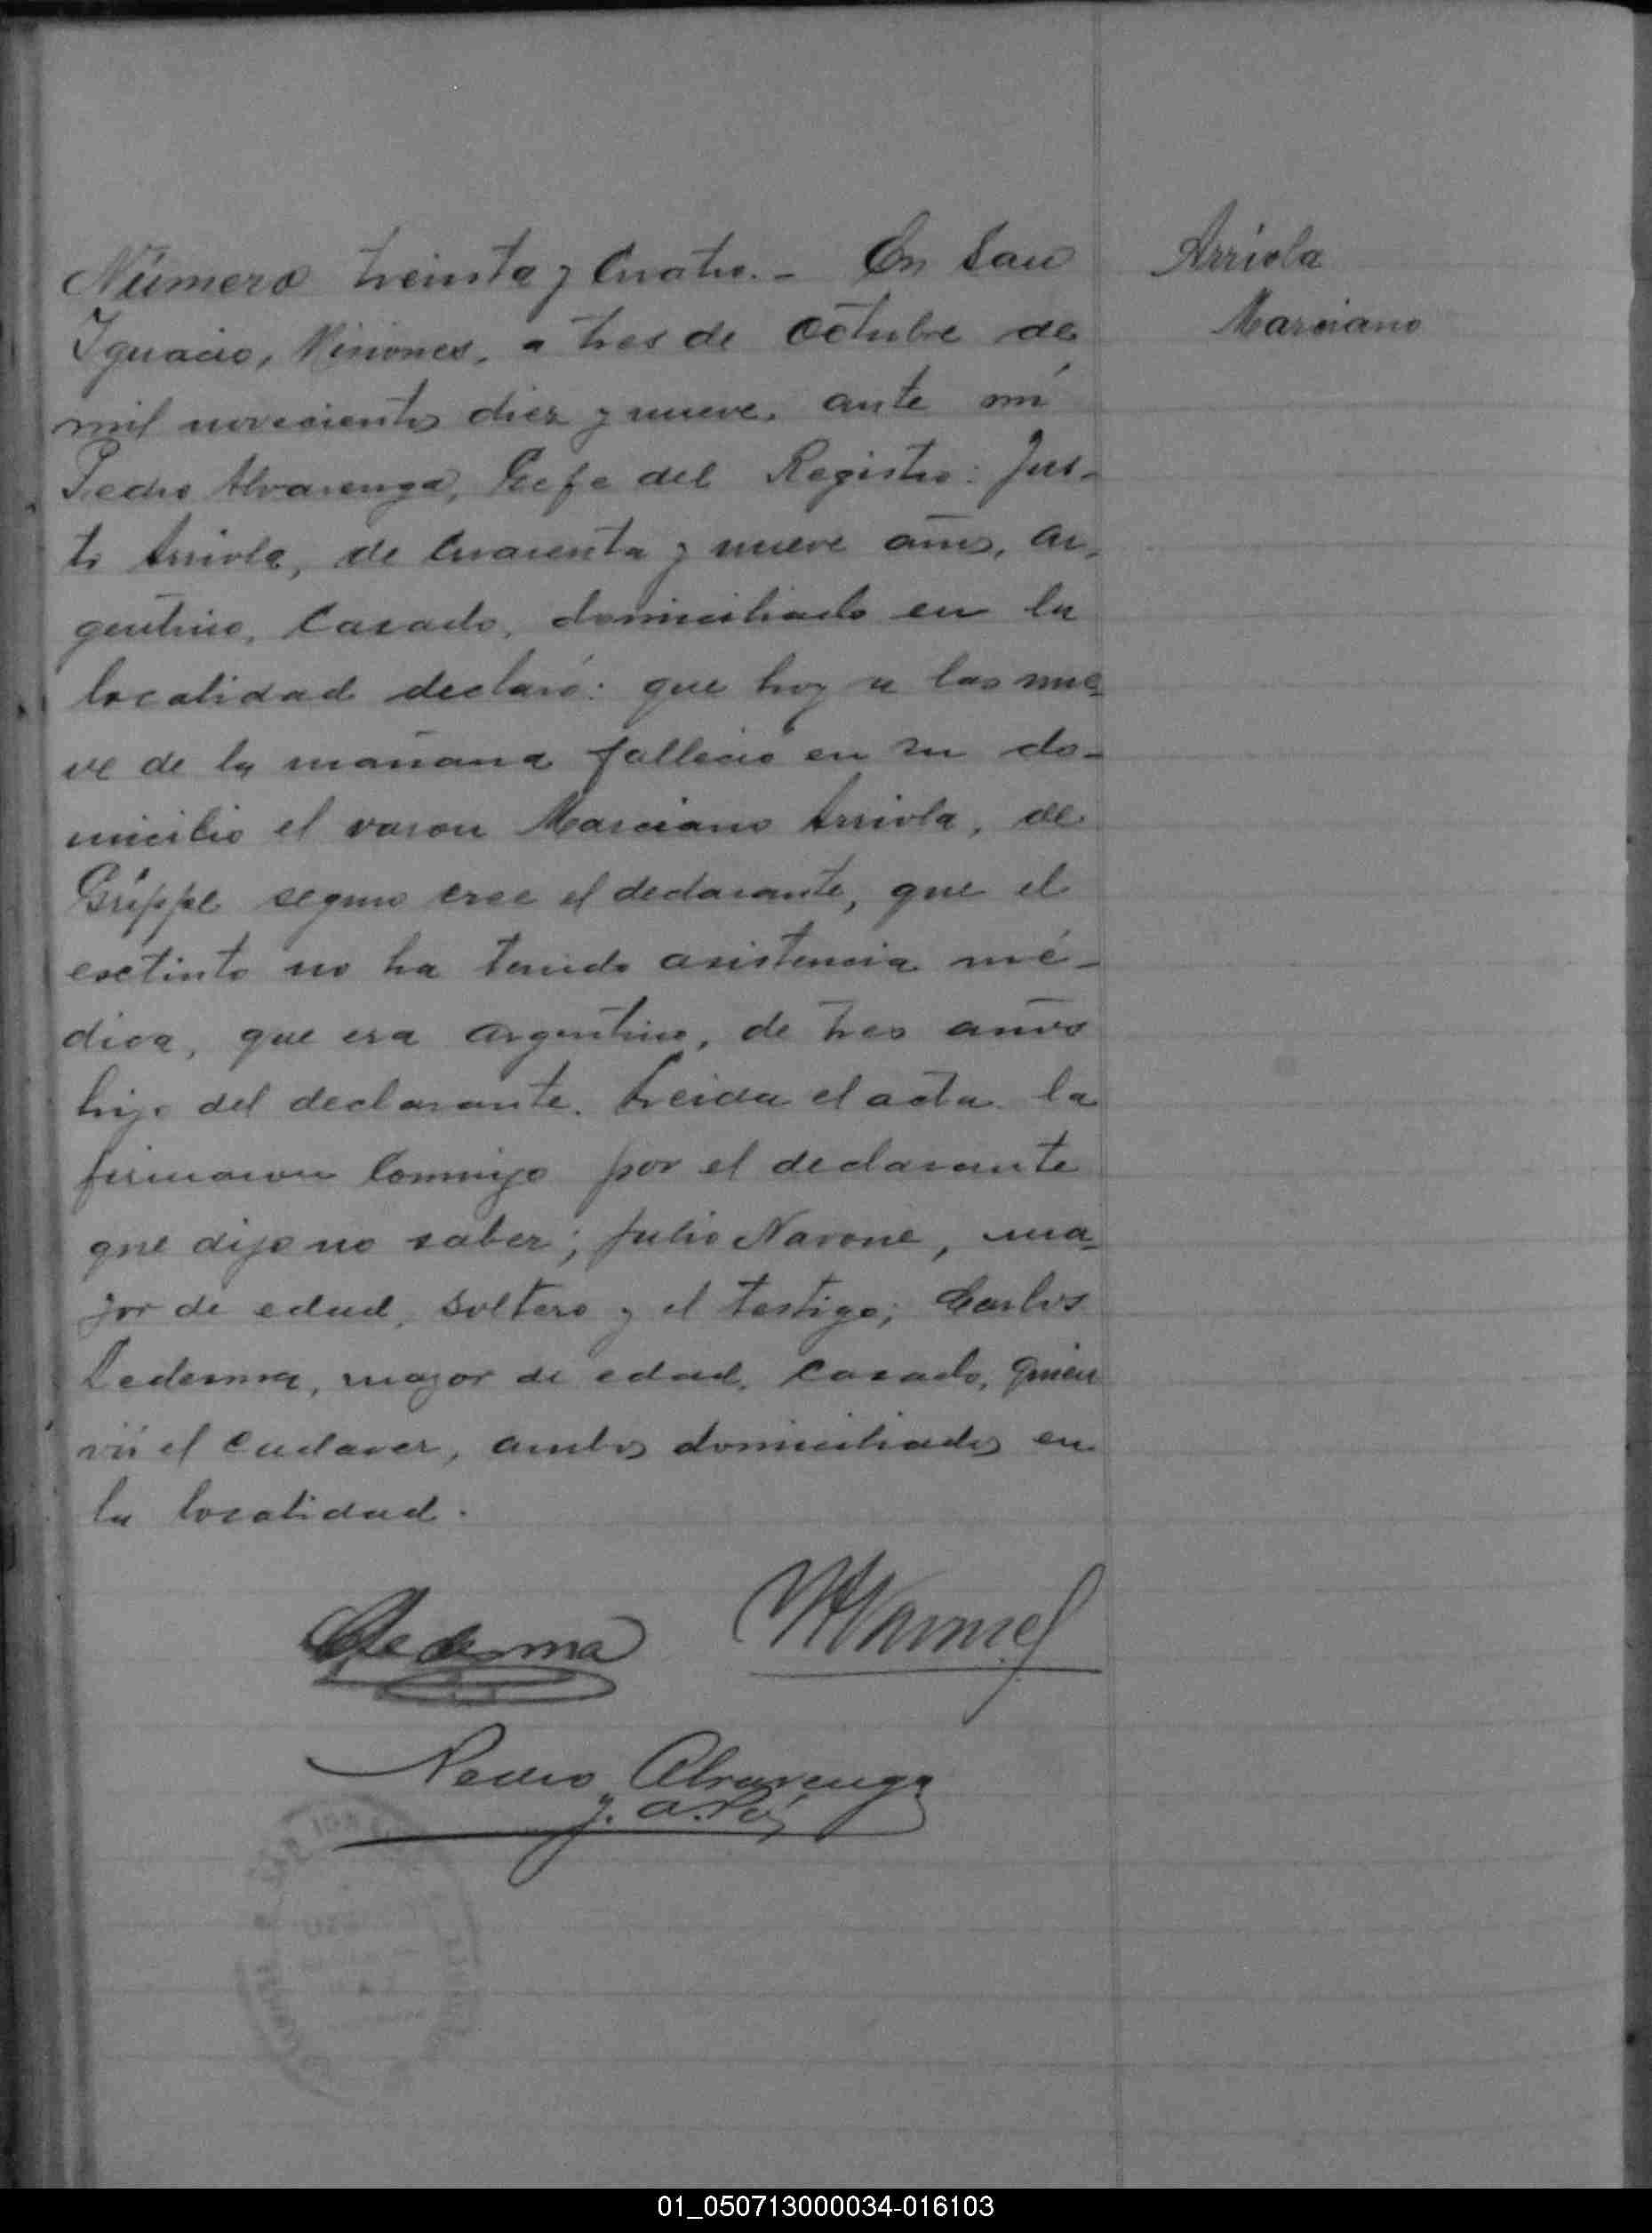 Número treinta y cuatro. - En San
Arriola
Ignacio, Misiones, a tres de Octubre de
Marciano
mil novecientos diez y nueve, ante mí
Pedro Alvarenga, Gefe del Registro: Jus-
to Arriola, de cuarenta y nueve años, ar-
gentino, casado, domiciliado en la
localidad declaró: que hoy a las nue-
ve de la mañana fallecio en su do-
micilio el varon Marciano Arriola, de
Grippe segun cree el declarante, que el
exctinto no ha tenido asistencia mé-
dica, que era argentino, de tres años
hijo del declarante. Leida el acta la
firmaron conmigo por el declarante
que dijo no saber; Julio Narone, ma-
yor de edad, soltero y el testigo; Carlos
Ledesma, mayor de edad, casado, quien
vió el cadaver, ambos domiciliados en
la localidad.
CLedesma
Pedro Alvarenga
01_050713000034-016103